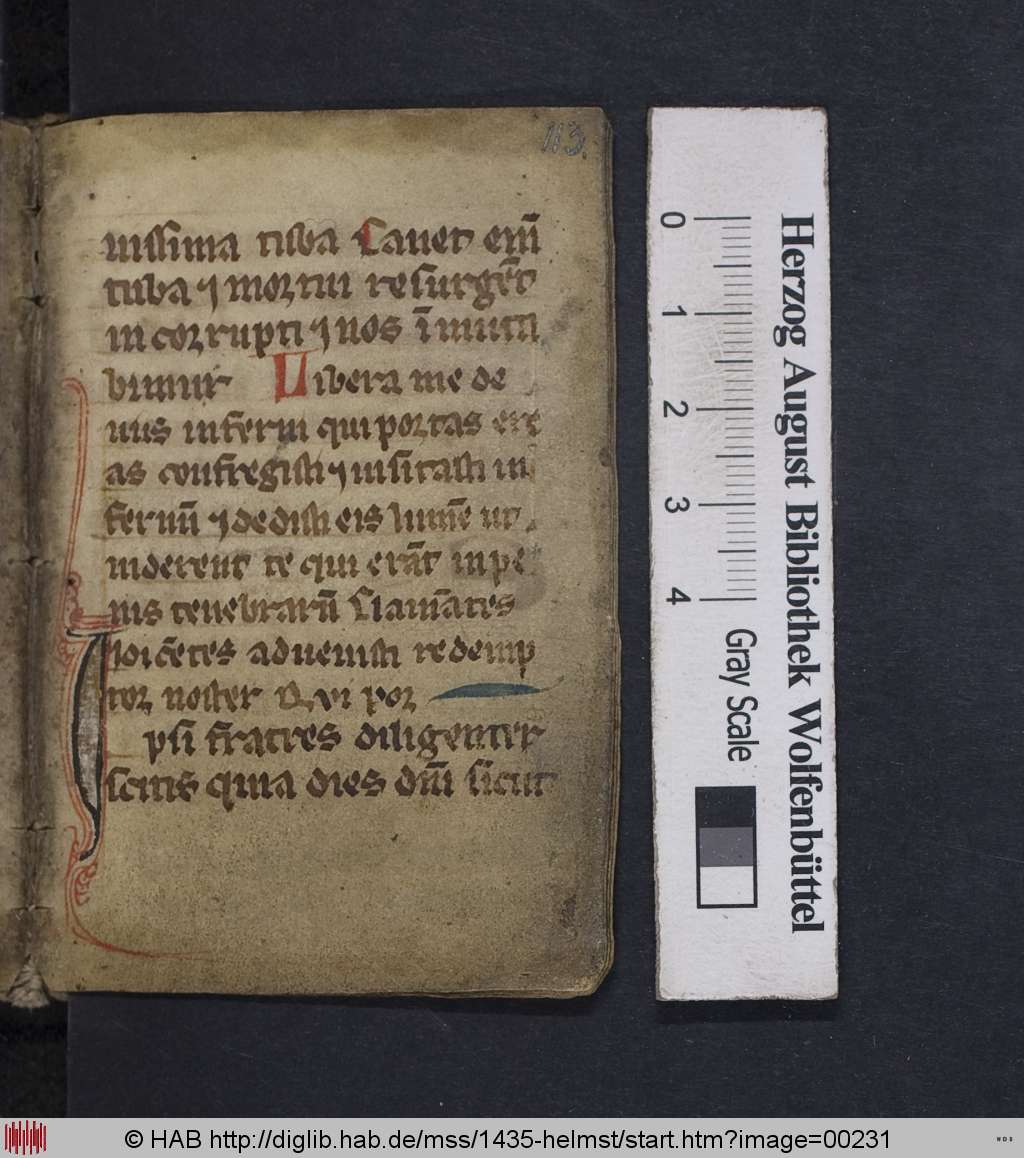 113.
nissima tuba Canet eni̅
tuba ⁊ mortui resurge̅t
incorrupti ⁊ nos i̅muta
bimur Libera me de
uiis inferni qui portas ere
as confregisti ⁊ uisitasti in
fernu̅ ⁊ dedisti eis lume̅ ut
uiderent te qui era̅t in pe
nis tenebraru̅ Clama̅tes
⁊ dice̅tes aduenisti redemp
tor noster Qui por
Ipsi fratres diligenter
scitis quia dies dn̅i sicut
0
1
2
3
4
Gray Scale
Herzog August Bibliothek Wolfenbüttel
© HAB http://diglib.hab.de/mss/1435-helmst/start.htm?image=00231